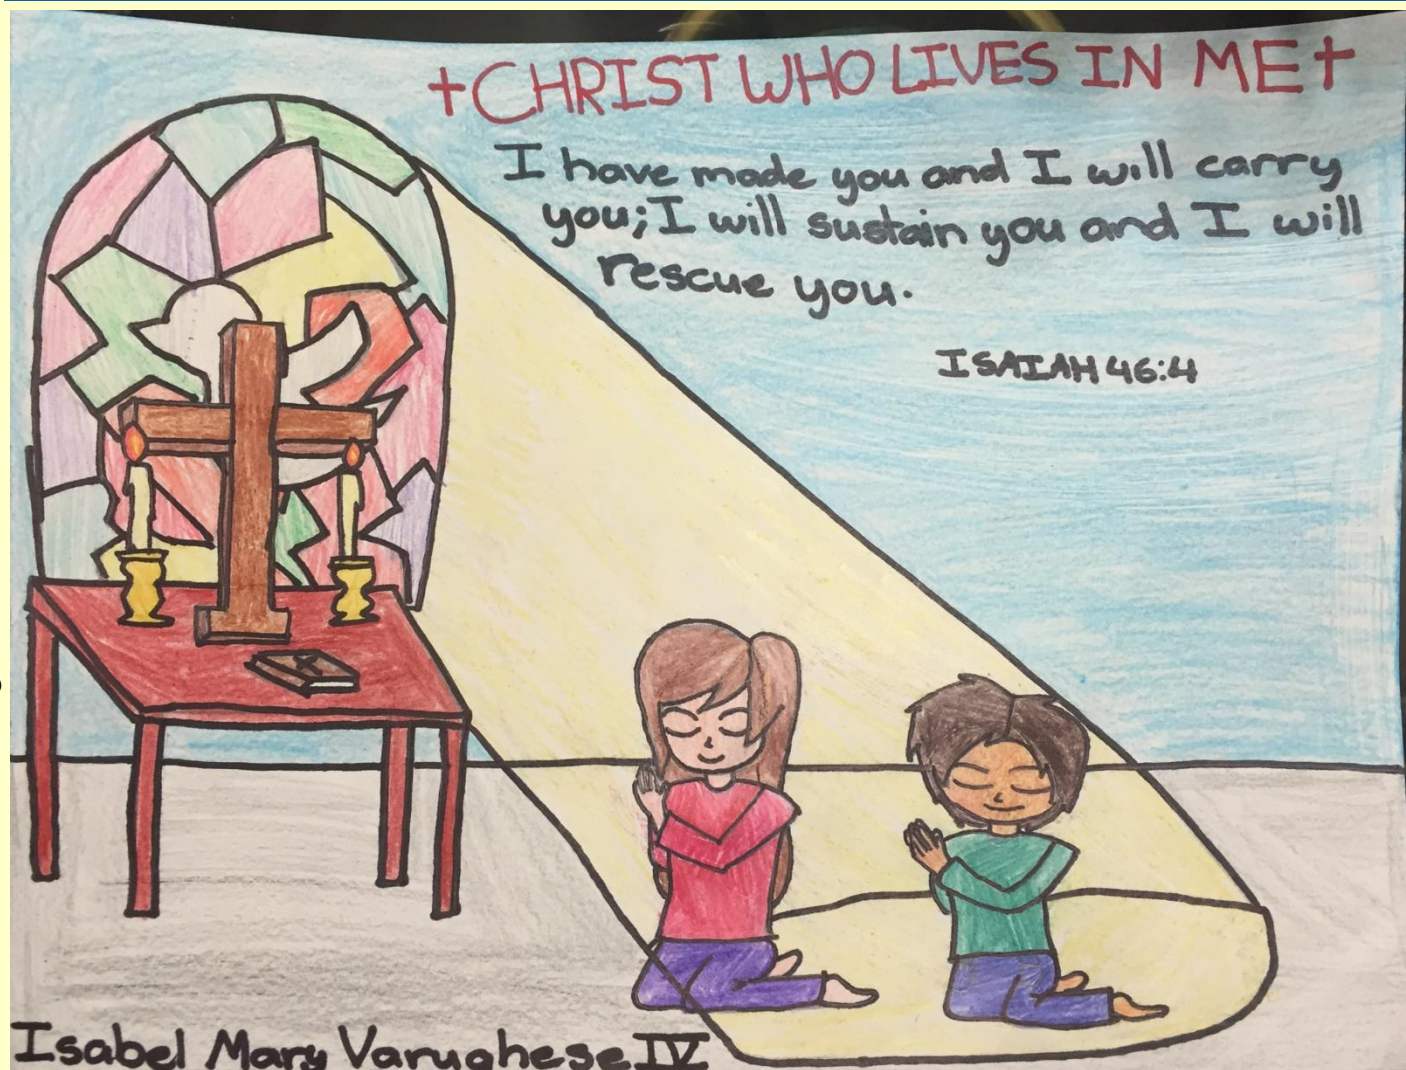 †CHRIST WHO LIVES IN ME†
I have made you and I will carry
you; I will sustain you and I will
rescue you.
ISAIAH 46:4
Isabel Mary Varughese IV